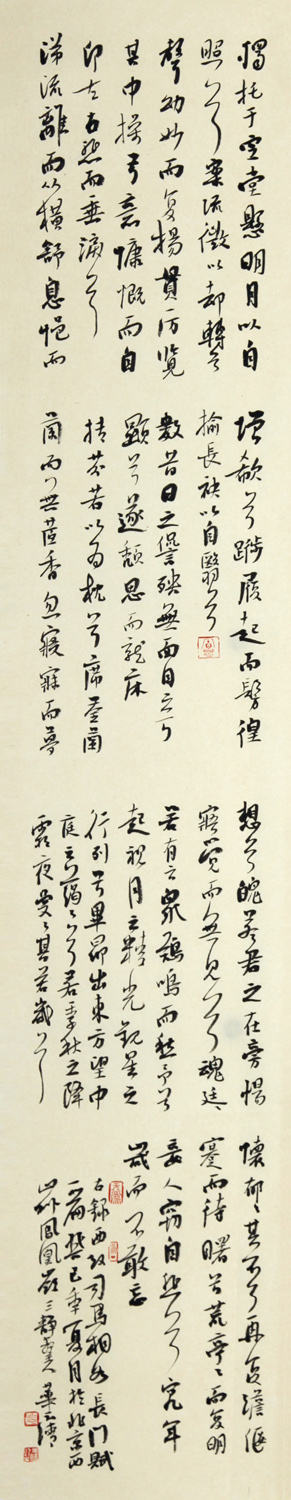 獨托于空堂懸明月以自
照兮案流徵以却轉兮
聲幼妙而复揚貫历覽
其中操兮意慷慨而自
卬左右悲而垂淚兮
涕流離而从横舒息悒而
增欷兮蹝履起而彷徨
揄長袂以自翳兮
數昔日之諐殃無面目之可
顯兮遂頽思而就床
摶芬若以为枕兮席荃蘭
而茝香忽寢寐而夢
想兮魄若君之在旁惕
寤覺而無見兮魂迋々
若有亡衆鷄鳴而愁予兮
起視月之精光觀星之
行列兮畢昴出東方望中
庭之藹々兮若季秋之降
霜夜曼々其若歲兮
懷郁々其不可再更澹偃
蹇而待曙兮荒亭々而复明
妾人竊自悲兮究年
歲而不敢忘
右録西汉司馬相如長門賦
一篇癸巳年夏月於北京西
山外鳳凰嶺三静